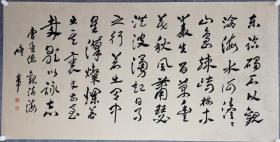 东临碣石以觀
滄海水何澹澹
山島竦峙樹木
叢生百草豐
茂秋風蕭瑟
洪波湧起日月
之行若出其中
星漢燦爛若
出其裏幸甚至
哉歌以詠志
曹孟德觀滄海